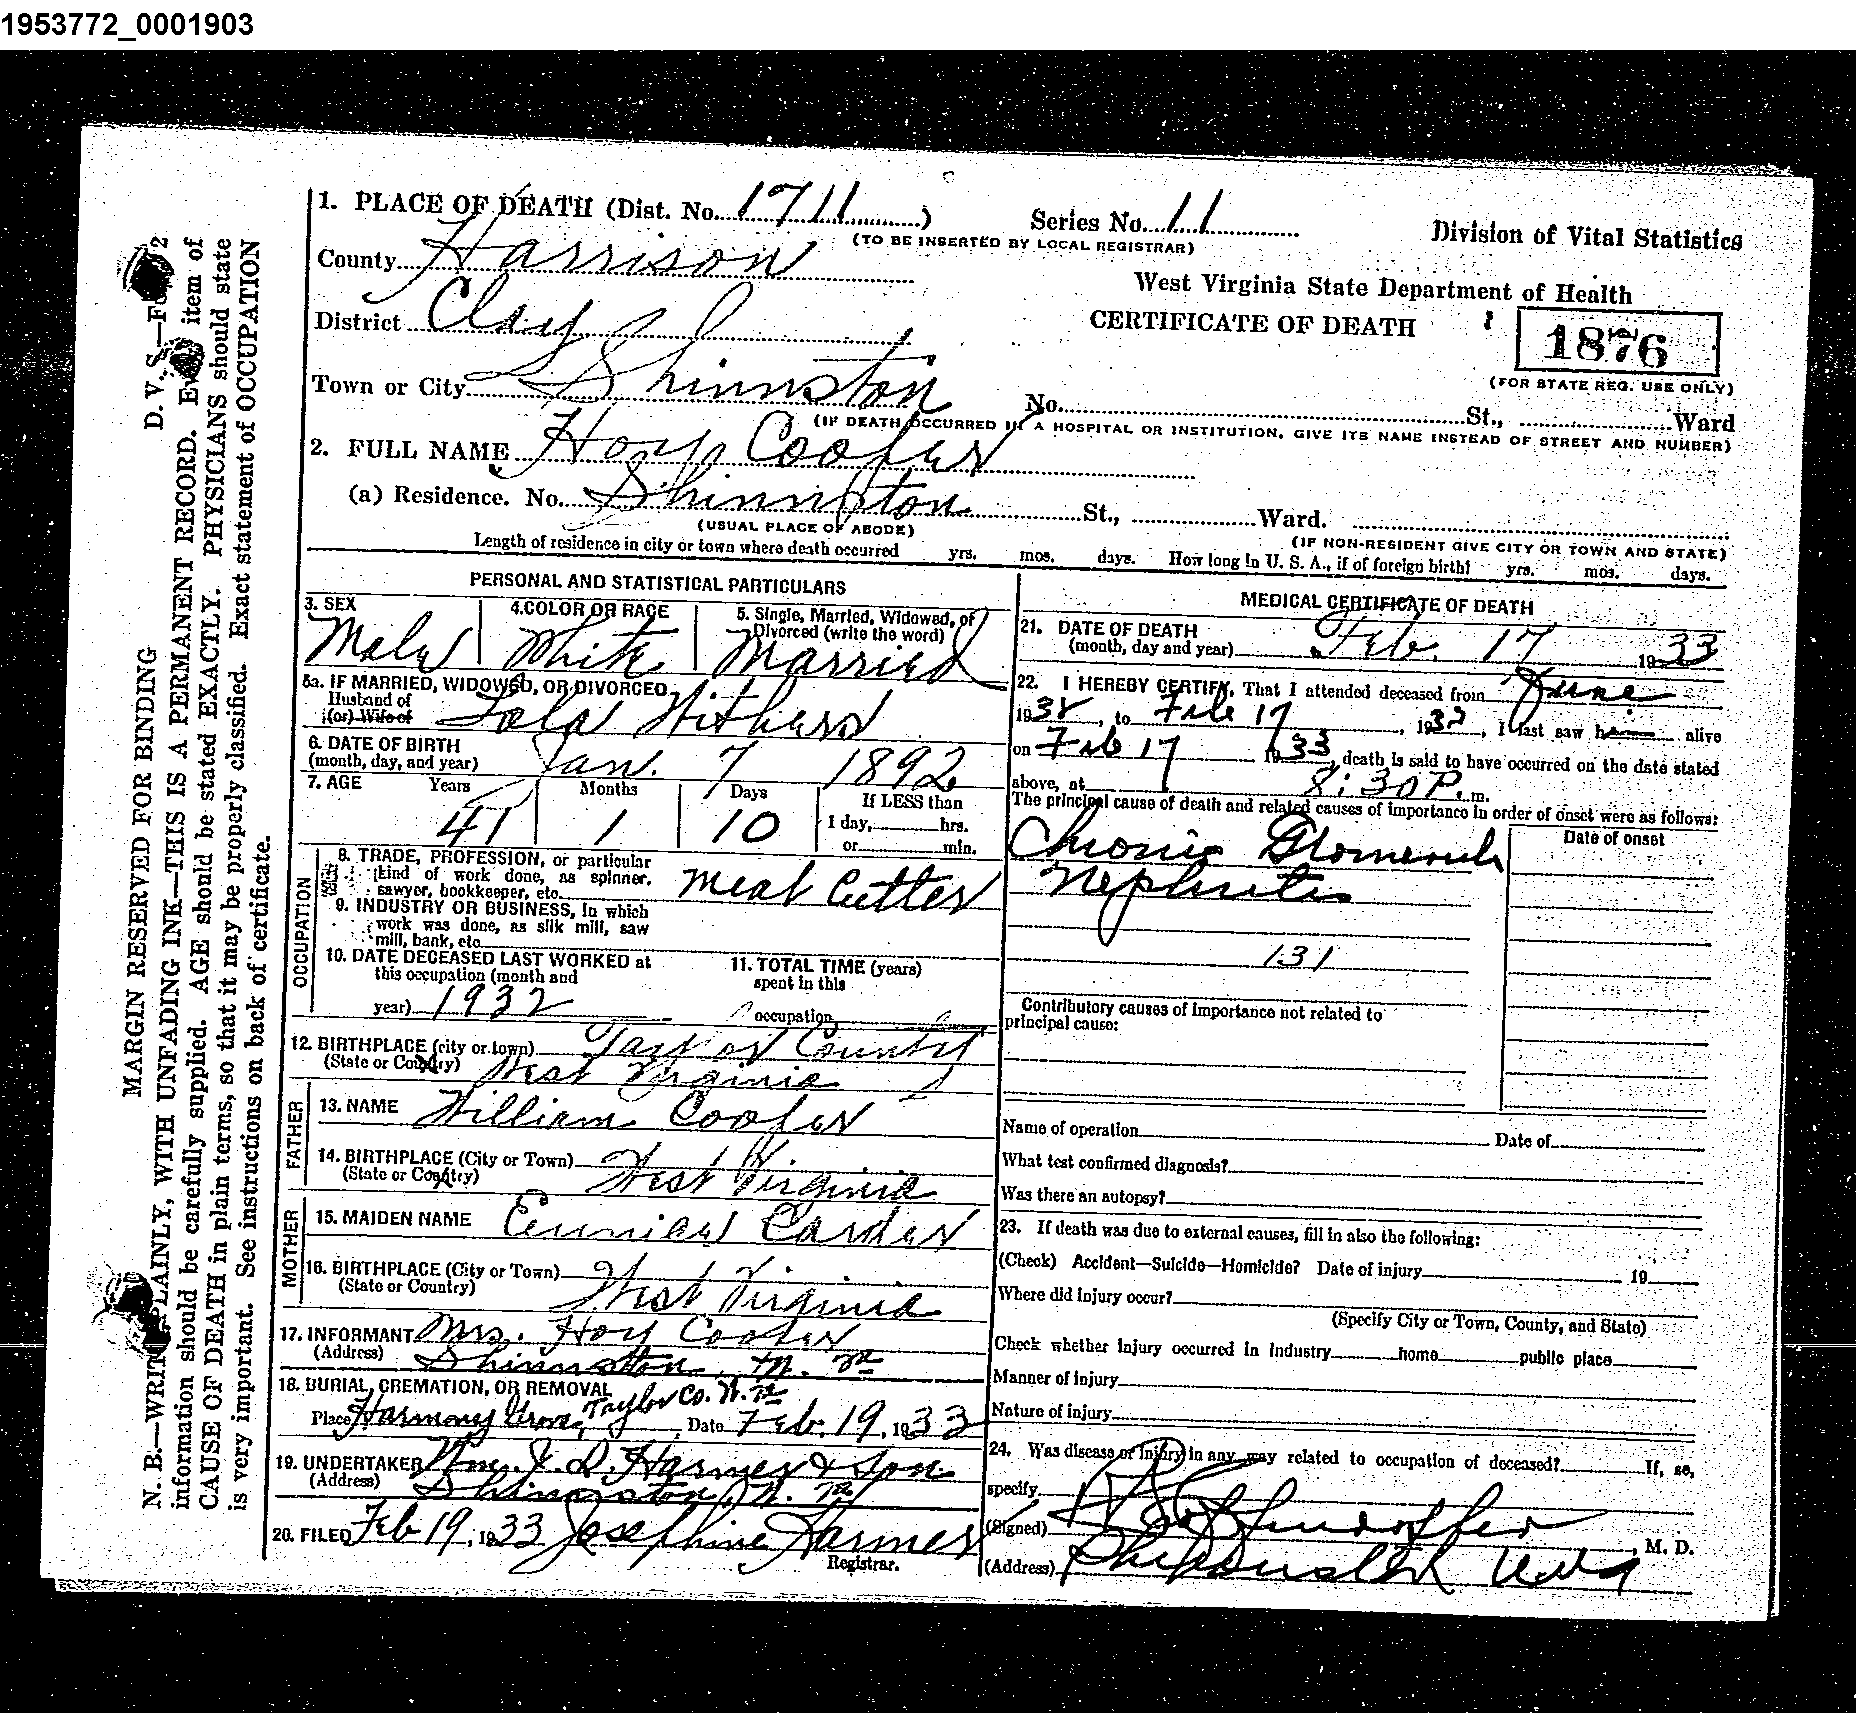 1953772_0001903
MARGIN RESERVED FOR BINDING D. V. S.
N. B.—WRITE PLAINLY, WITH UNFADING INK—THIS IS A PERMANENT RECORD. Every item of
information should be carefully supplied. AGE should be stated EXACTLY. PHYSICIANS should state
CAUSE OF DEATH in plain terms, so that it may be properly classified. Exact statement of OCCUPATION
is very important. See instructions on back of certificate.
1. PLACE OF DEATH (Dist. No. 1711) Series No. 11 Division of Vital Statistics
(TO BE INSERTED BY LOCAL REGISTRAR)
County Harrison
West Virginia State Department of Health
District Clay
CERTIFICATE OF DEATH 1876
(FOR STATE REG. USE ONLY)
Town or City Shinnston No. St., Ward
(IF DEATH OCCURRED IN A HOSPITAL OR INSTITUTION, GIVE ITS NAME INSTEAD OF STREET AND NUMBER)
2. FULL NAME Hoy Cooper
(a) Residence. No. Shinnston St., Ward.
(USUAL PLACE OF ABODE) (IF NON-RESIDENT GIVE CITY OR TOWN AND STATE)
Length of residence in city or town where death occurred yrs. mos. days. How long in U. S. A., if of foreign birth? yrs. mos. days.
PERSONAL AND STATISTICAL PARTICULARS
3. SEX 4. COLOR OR RACE 5. Single, Married, Widowed, or
Divorced (write the word)
Male White Married
5a. IF MARRIED, WIDOWED, OR DIVORCED
Husband of
(or) Wife of Withers
6. DATE OF BIRTH
(month, day, and year) Jan. 7 1892
7. AGE Years Months Days If LESS than
41 1 10 1 day, hrs.
or min.
OCCUPATION
8. TRADE, PROFESSION, or particular
kind of work done, as spinner,
sawyer, bookkeeper, etc. Meat Cutter
9. INDUSTRY OR BUSINESS, in which
work was done, as silk mill, saw
mill, bank, etc
10. DATE DECEASED LAST WORKED at
this occupation (month and
year) 1932
11. TOTAL TIME (years)
spent in this
occupation
12. BIRTHPLACE (city or town) Taylor County
(State or Country) West Virginia
FATHER
13. NAME William Cooper
14. BIRTHPLACE (City or Town)
(State or Country) West Virginia
MOTHER
15. MAIDEN NAME Carder
16. BIRTHPLACE (City or Town)
(State or Country) West Virginia
17. INFORMANT Mrs. Hoy Cooper
(Address) Shinnston, W. Va
18. BURIAL, CREMATION, OR REMOVAL Taylor Co. W. Va
Place Harmony Grove, Date Feb. 19, 1933
19. UNDERTAKER Wm. J. D. Harmer & Son
(Address) Shinnston, W. Va
20. FILED Feb 19, 1933 Josephine Harmer
Registrar.
MEDICAL CERTIFICATE OF DEATH
21. DATE OF DEATH
(month, day and year) Feb. 17 1933
22. I HEREBY CERTIFY, That I attended deceased from June
1932, to Feb 17, 1933, I last saw h alive
on Feb 17 1933, death is said to have occurred on the date stated
above, at 8:30 P. m.
The principal cause of death and related causes of importance in order of onset were as follows:
Date of onset
Chronic Glomerular
Nephritis
131
Contributory causes of importance not related to
principal cause:
Name of operation Date of
What test confirmed diagnosis?
Was there an autopsy?
23. If death was due to external causes, fill in also the following:
(Check) Accident—Suicide—Homicide? Date of injury 19
Where did injury occur?
(Specify City or Town, County, and State)
Check whether injury occurred in industry home public place
Manner of injury
Nature of injury
24. Was disease or injury in any way related to occupation of deceased? If, so,
specify
(Signed) M. D.
(Address)